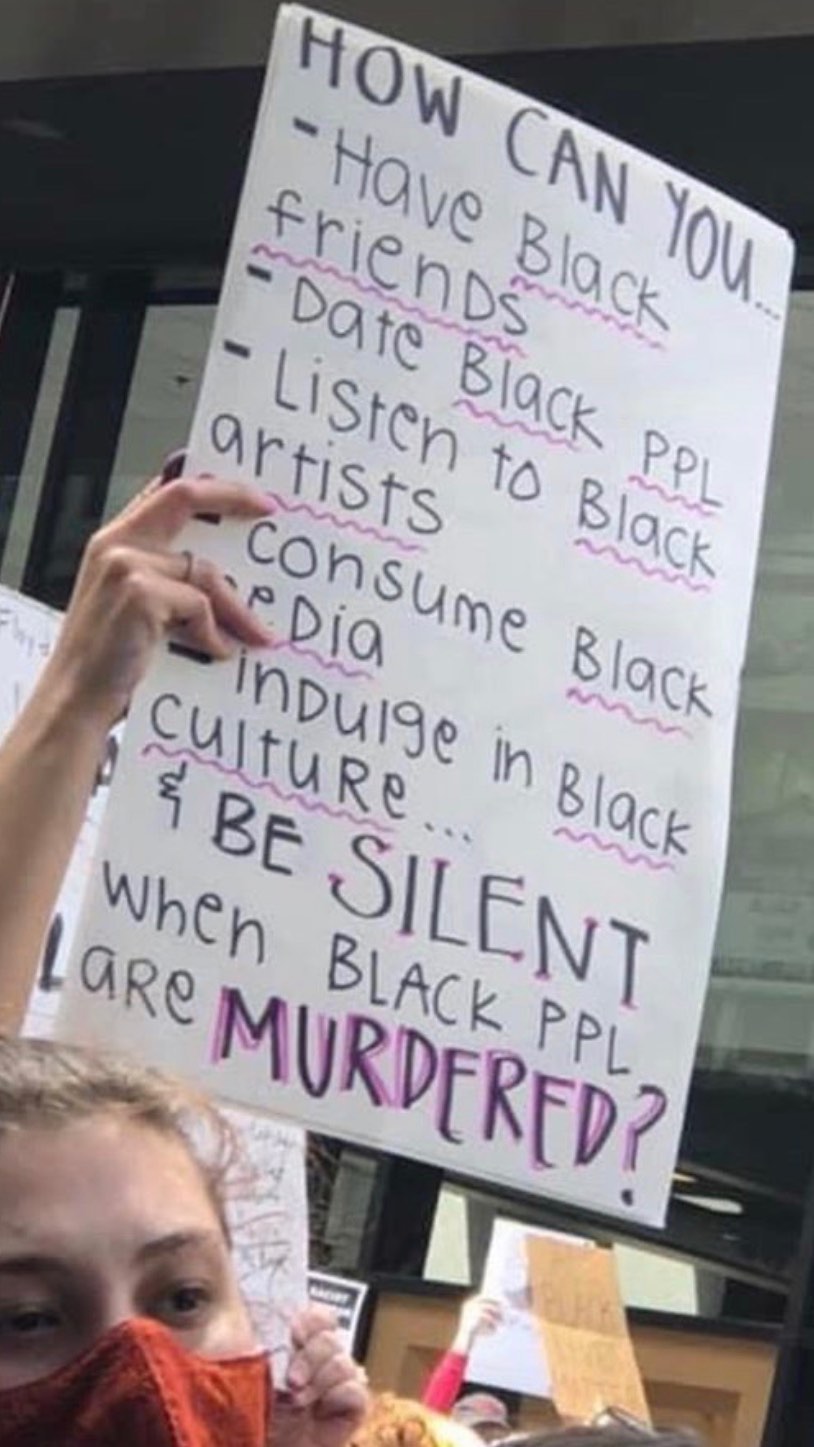 HOW CAN YOU...
- Have Black
friends
- Date Black PPL
- Listen to Black
artists
- consume Black
media
- indulge in Black
culture...
& BE SILENT
when BLACK PPL
are MURDERED?
RACIST
BLACK